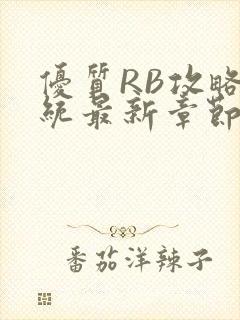 優質RB攻略
統最新章節
番茄洋辣子